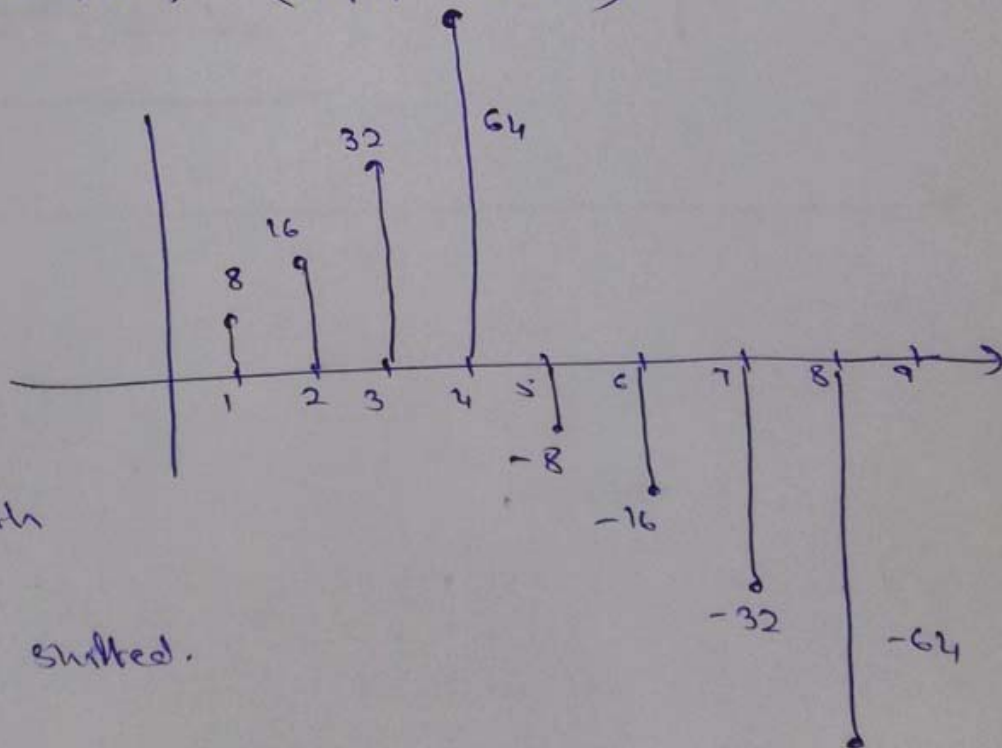 64
32
16
8
1 2 3 4 5 6 7 8 9
-8
-16
-32
-64
shifted.